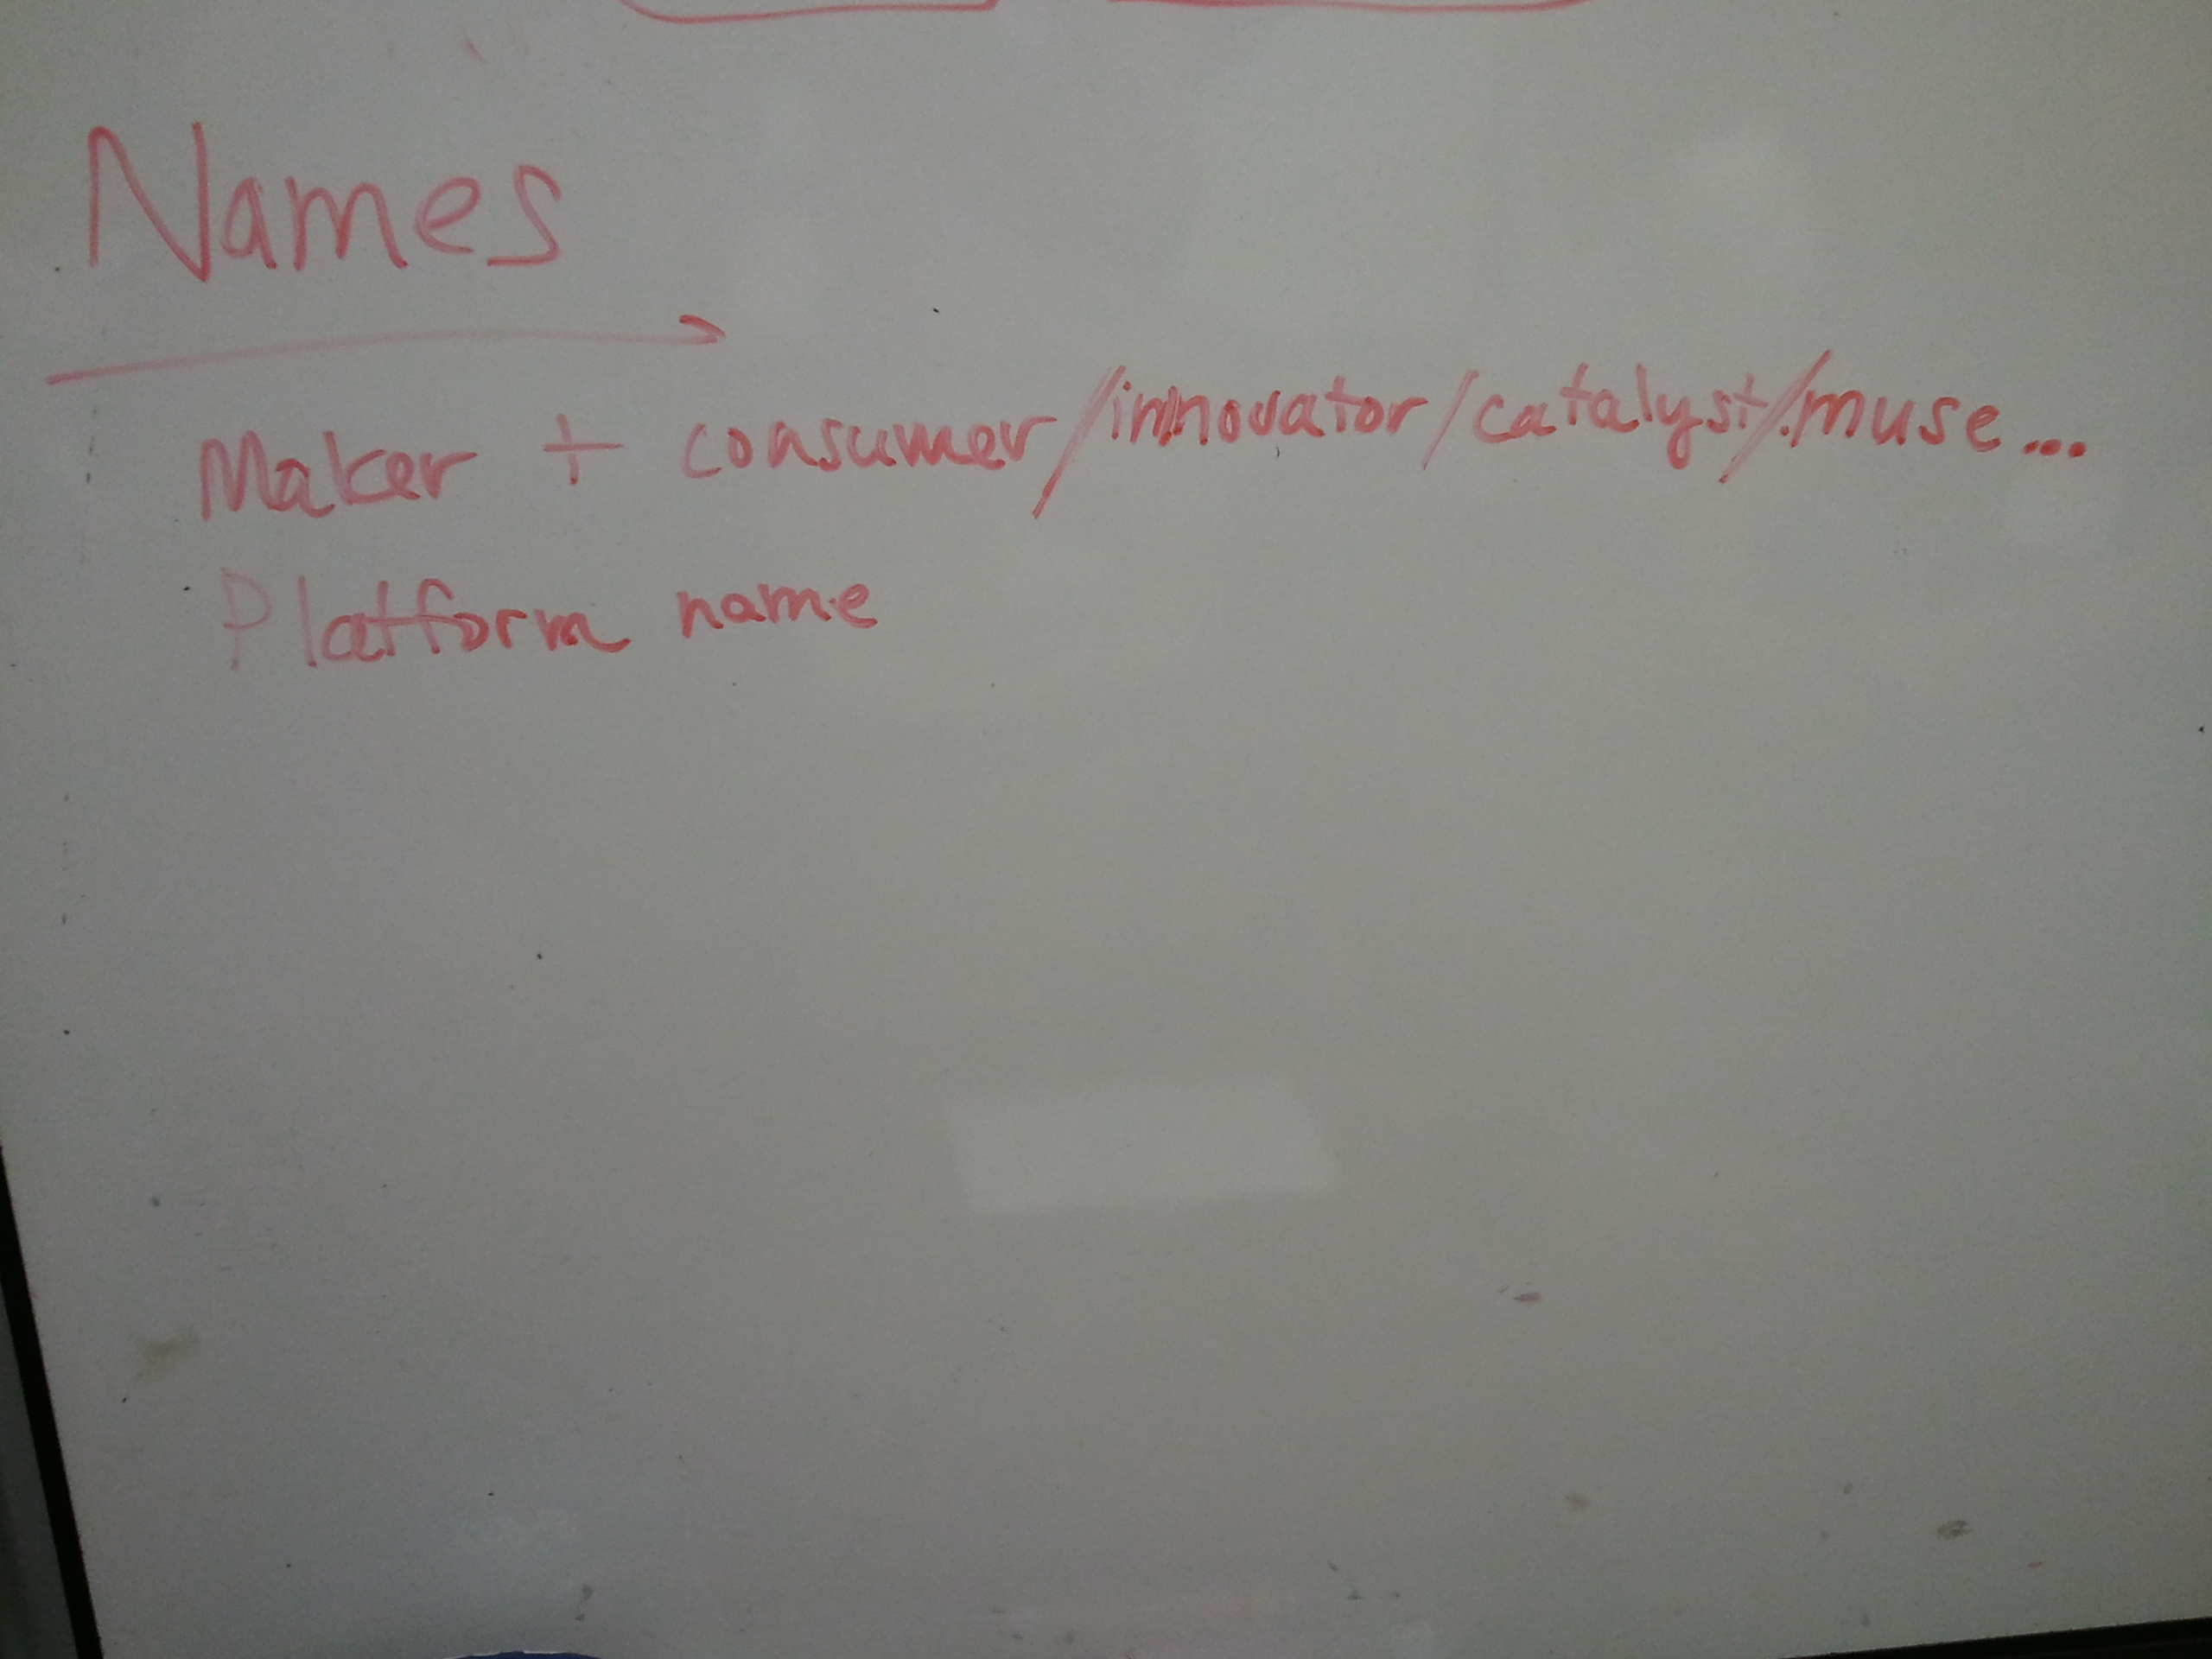 Names
Maker + consumer/innovator/catalyst/muse...
Platform name